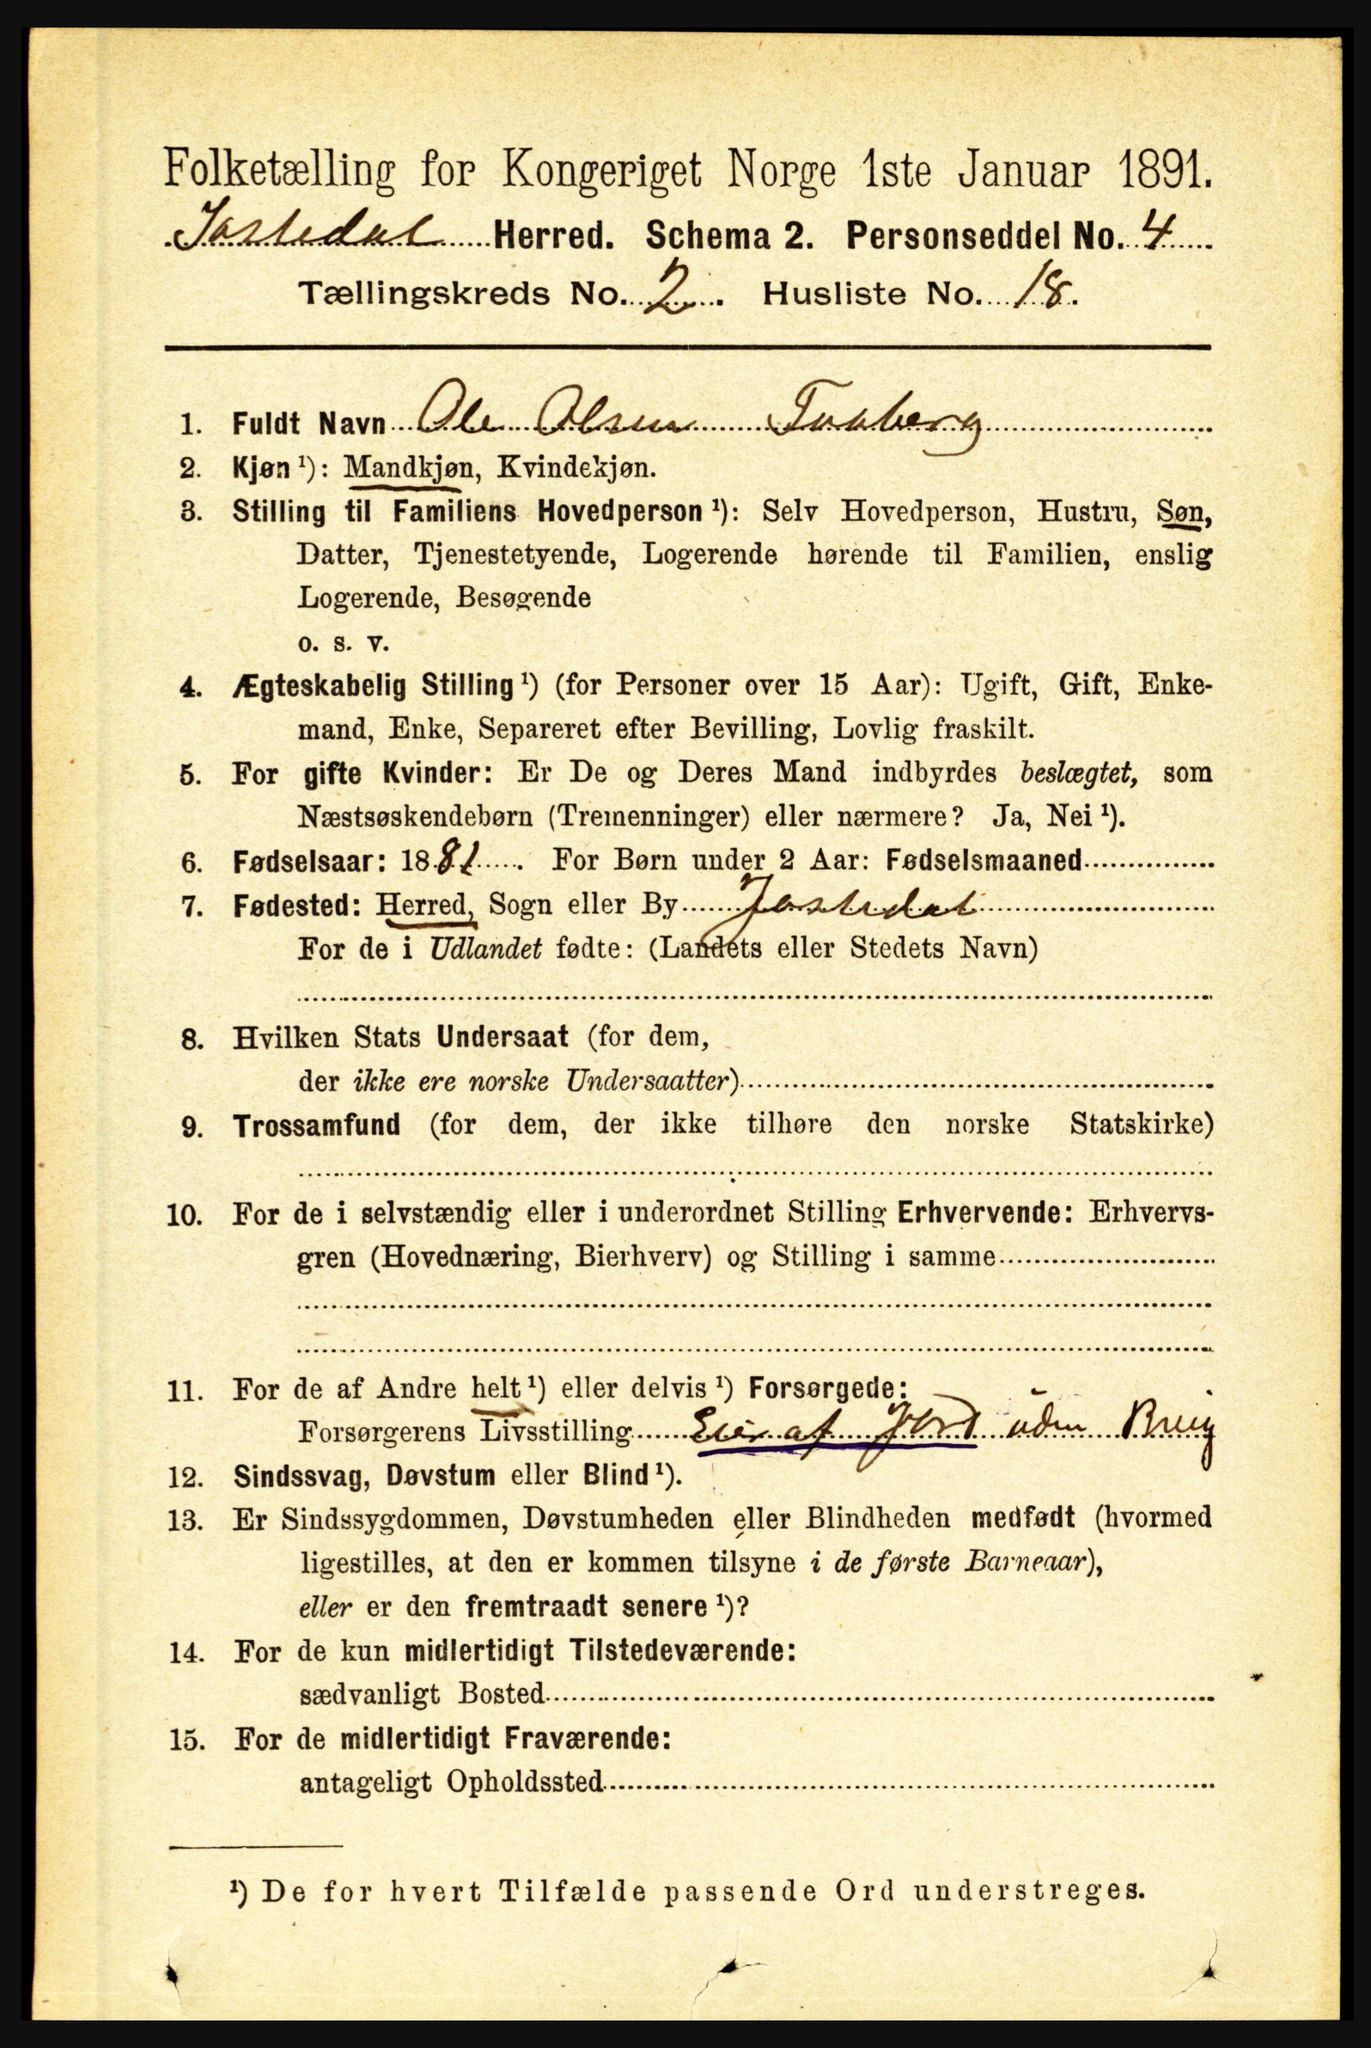 Folketælling for Kongeriget Norge 1ste Januar 1891.
Jostedal Herred. Schema 2. Personseddel No. 4
Tællingskreds No. 2. Husliste No. 18.
1. Fuldt Navn Ole Olsen Faaberg
2. Kjøn ¹): Mandkjøn, Kvindekjøn.
3. Stilling til Familiens Hovedperson ¹): Selv Hovedperson, Hustru, Søn,
Datter, Tjenestetyende, Logerende hørende til Familien, enslig
Logerende, Besøgende
o. s. v.
4. Ægteskabelig Stilling ¹) (for Personer over 15 Aar): Ugift, Gift, Enke-
mand, Enke, Separeret efter Bevilling, Lovlig fraskilt.
5. For gifte Kvinder: Er De og Deres Mand indbyrdes beslægtet, som
Næstsøskendebørn (Tremenninger) eller nærmere? Ja, Nei ¹).
6. Fødselsaar: 1881. For Børn under 2 Aar: Fødselsmaaned
7. Fødested: Herred, Sogn eller By Jostedal
For de i Udlandet fødte: (Landets eller Stedets Navn)
8. Hvilken Stats Undersaat (for dem,
der ikke ere norske Undersaatter)
9. Trossamfund (for dem, der ikke tilhøre den norske Statskirke)
10. For de i selvstændig eller i underordnet Stilling Erhvervende: Erhvervs-
gren (Hovednæring, Bierhverv) og Stilling i samme
11. For de af Andre helt ¹) eller delvis ¹) Forsørgede:
Forsørgerens Livsstilling Eier af Jord uden Brug
12. Sindssvag, Døvstum eller Blind ¹).
13. Er Sindssygdommen, Døvstumheden eller Blindheden medfødt (hvormed
ligestilles, at den er kommen tilsyne i de første Barneaar),
eller er den fremtraadt senere ¹)?
14. For de kun midlertidigt Tilstedeværende:
sædvanligt Bosted
15. For de midlertidigt Fraværende:
antageligt Opholdssted
¹) De for hvert Tilfælde passende Ord understreges.